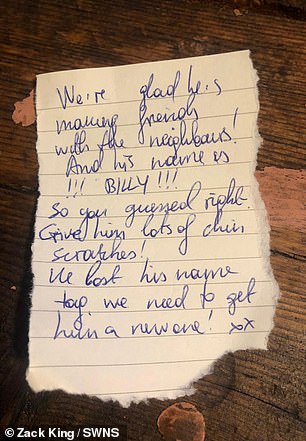 We're glad he's
making friends
with the neighbours!
And his name is
!!! BILLY !!!
So you guessed right.
Give him lots of chin
scratches!
He lost his name
tag, we need to get
him a new one! xx
© Zack King / SWNS